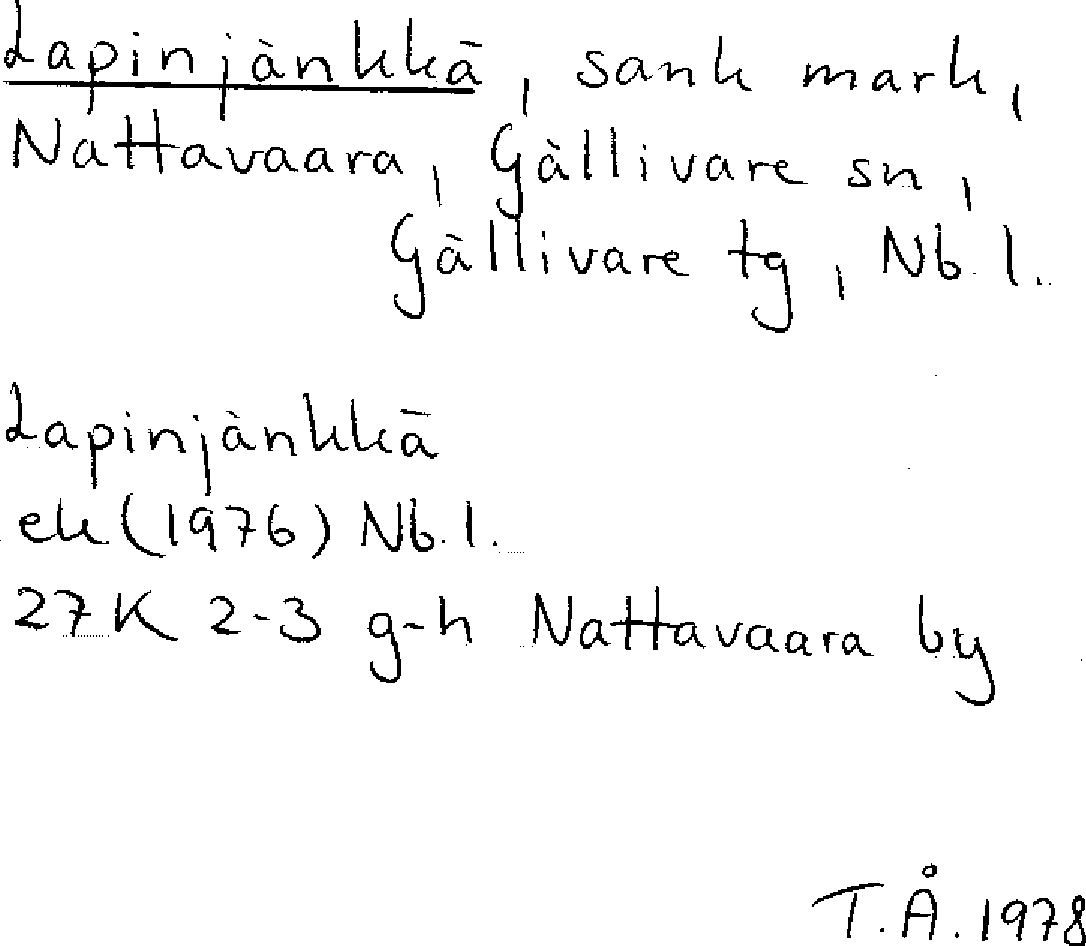 Lapinjänkkä, sank mark,
Nattavaara, Gällivare sn,
Gällivare tg, Nb.l.
Lapinjänkkä
ek (1976) Nb.l.
27K 2-3 g-h Nattavaara by
T.Å. 1978